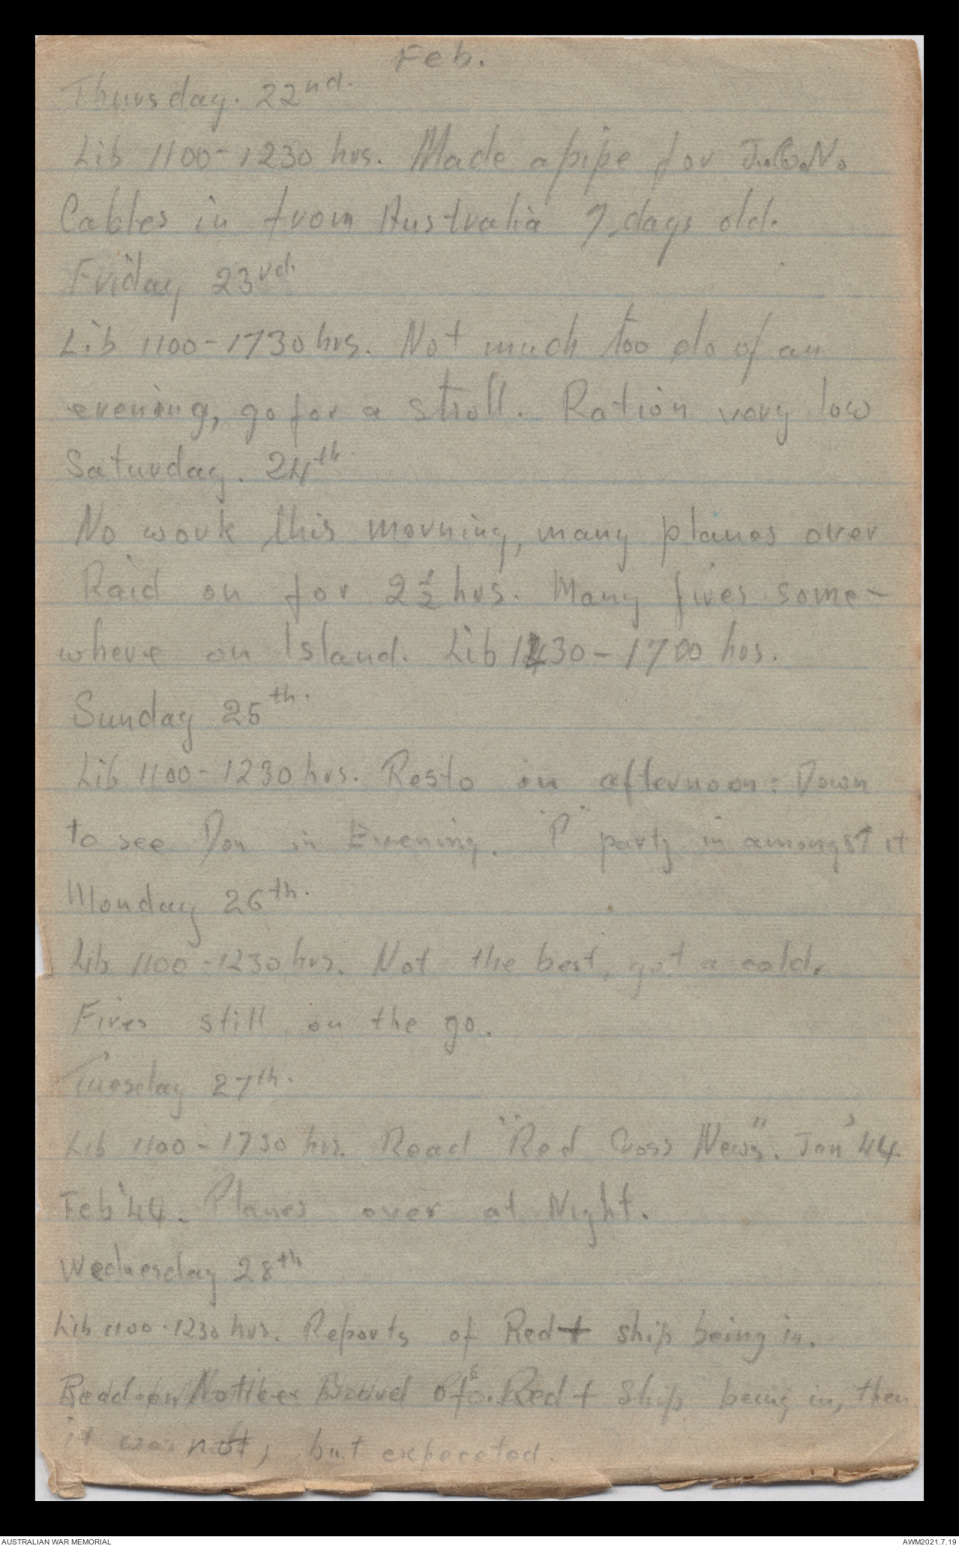 Feb.
Thursday. 22nd.
Lib 1100-1230 hrs. Made a pipe for J.C.N.
Cables in from Australia 7 days old.
Friday 23rd.
Lib 1100-1730 hrs. Not much too do of an
evening, go for a stroll. Ration very low
Saturday. 24th.
No work this morning, many planes over
Raid on for 2½ hrs. Many fires some-
where on Island. Lib 1430-1700 hrs.
Sunday 25th.
Lib 1100-1230 hrs. Resto in afternoon: Down
to see Don in Evening. "P" party in amongst it
Monday 26th.
Lib 1100-1230 hrs. Not the best, got a cold.
Fires still on the go.
Tuesday 27th.
Lib 1100-1730 hrs. Read "Red Cross News". Jan '44.
Feb '44. Planes over at Night.
Wednesday 28th
Lib 1100-1230 hrs. Reports of Red + ship being in.
Read on Notice Board of Red + Ship being in, then
it was not, but expeceted.
AUSTRALIAN WAR MEMORIAL
AWM2021.7.19